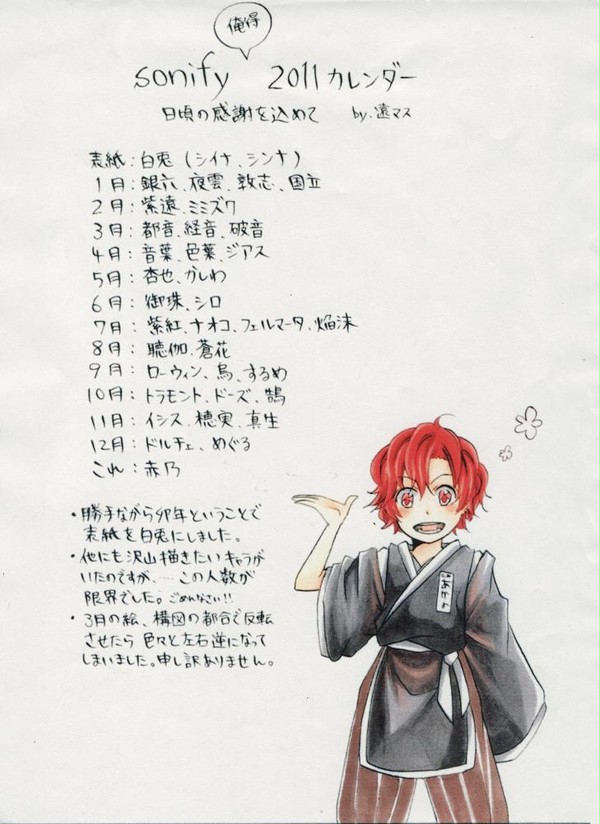 俺得
sonify 2011カレンダー
日頃の感謝を込めて by.遠マス
表紙:白兎(シイナ、シンナ)
1月:銀六、夜雲、敦志、国立
2月:紫遠、ミミズク
3月:都音、経音、破音
4月:音葉、色葉、ジアス
5月:杏也、かしわ
6月:御珠、シロ
7月:紫紅、ナオコ、フェルマータ、焔沫
8月:聴伽、蒼花
9月:ローウィン、烏、するめ
10月:トラモント、ドーズ、鵠
11月:イシス、穂実、真生
12月:ドルチェ、めぐる
これ:赤乃
・勝手ながら卯年ということで
表紙を白兎にしました。
・他にも沢山描きたいキャラが
いたのですが、…この人数が
限界でした。ごめんなさい!!
・3月の絵、構図の都合で反転
させたら色々と左右逆になって
しまいました。申し訳ありません。